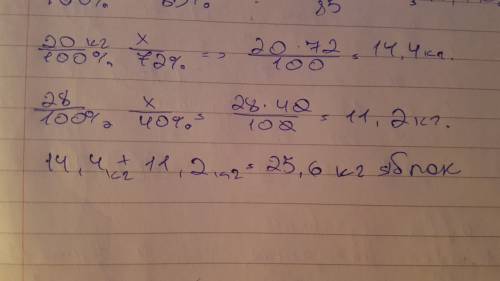 100% 65% 85
20 кг/100% x/72% => 20·72/100 = 14,4кг.
28/100% = x/40% = 28·40/100 = 11,2кг.
14,4кг + 11,2кг = 25,6 кг яблок